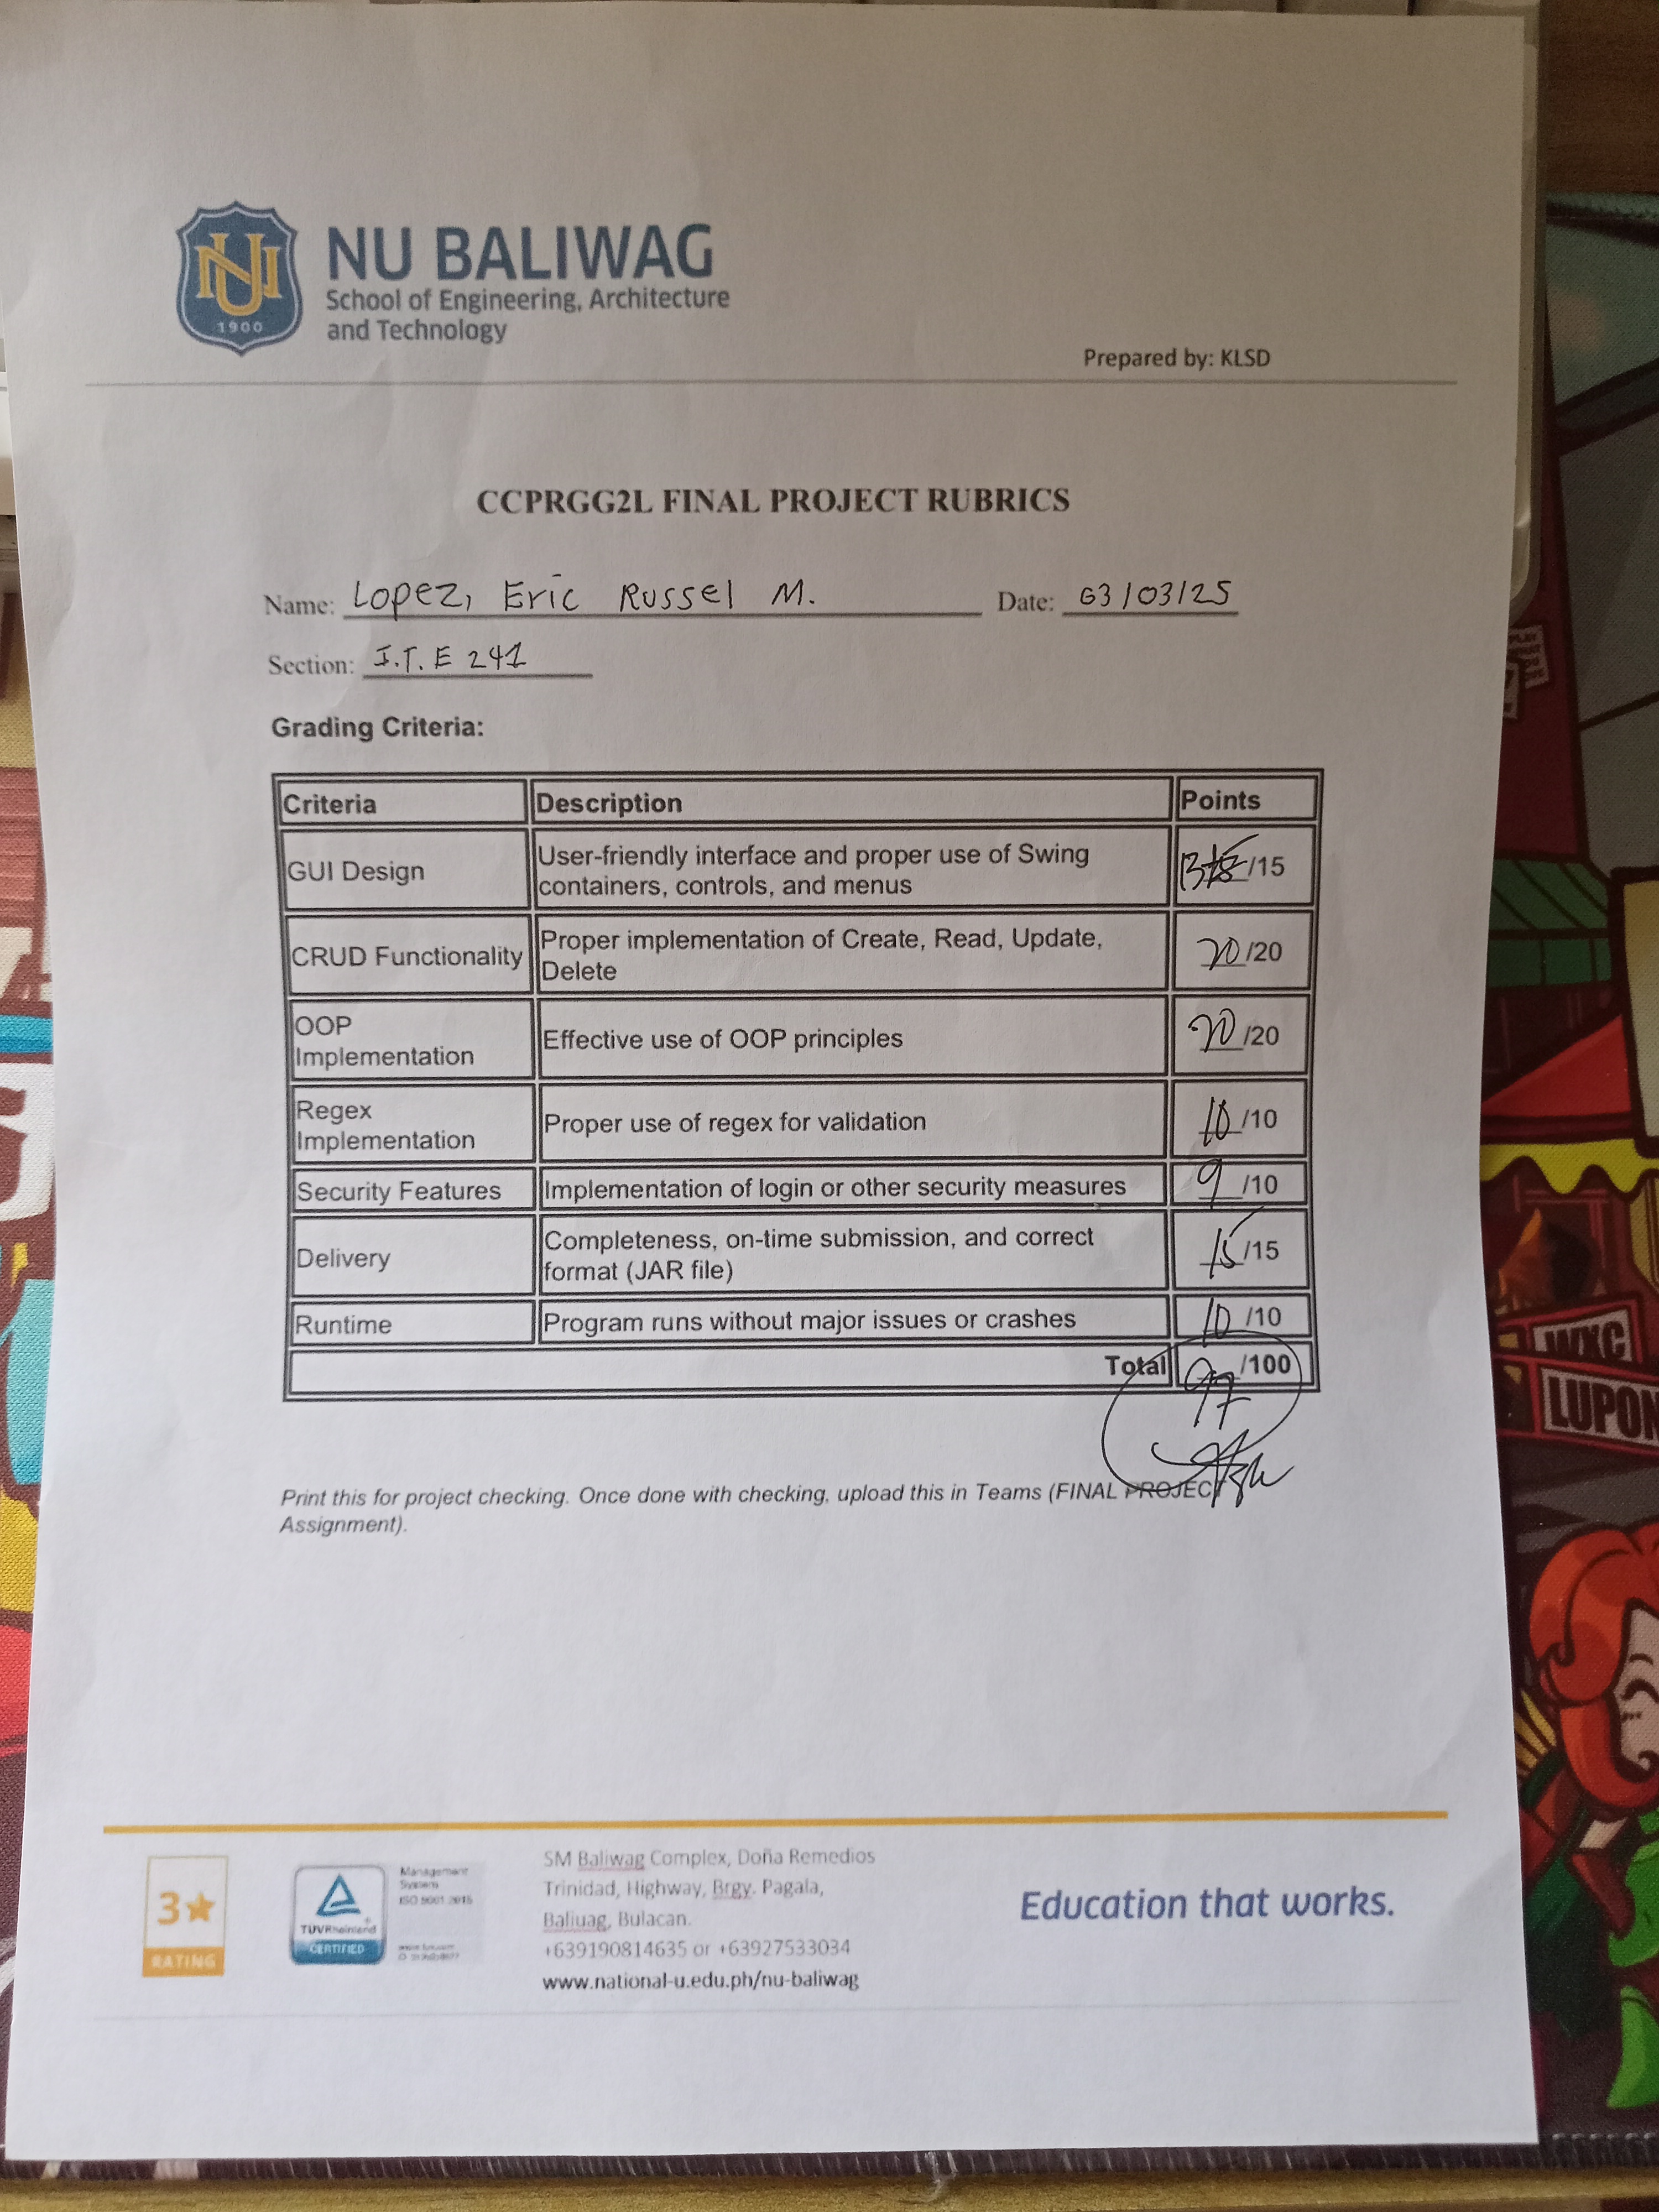 NU BALIWAG
School of Engineering, Architecture
and Technology
1900
Prepared by: KLSD
CCPRGG2L FINAL PROJECT RUBRICS
Name: Lopez, Eric Russel M. Date: 03/03/25
Section: I.T.E 241
Grading Criteria:
Criteria Description Points
GUI Design User-friendly interface and proper use of Swing containers, controls, and menus 13 /15
CRUD Functionality Proper implementation of Create, Read, Update, Delete 20/20
OOP Implementation Effective use of OOP principles 20/20
Regex Implementation Proper use of regex for validation 10/10
Security Features Implementation of login or other security measures 9/10
Delivery Completeness, on-time submission, and correct format (JAR file) 15/15
Runtime Program runs without major issues or crashes 10/10
Total 97/100
Print this for project checking. Once done with checking, upload this in Teams (FINAL PROJECT
Assignment).
3★
RATING
TÜVRheinland
CERTIFIED
Management
System
ISO 9001:2015
SM Baliwag Complex, Doña Remedios
Trinidad, Highway, Brgy. Pagala,
Baliuag, Bulacan.
+639190814635 or +63927533034
www.national-u.edu.ph/nu-baliwag
Education that works.
WXC
LUPON